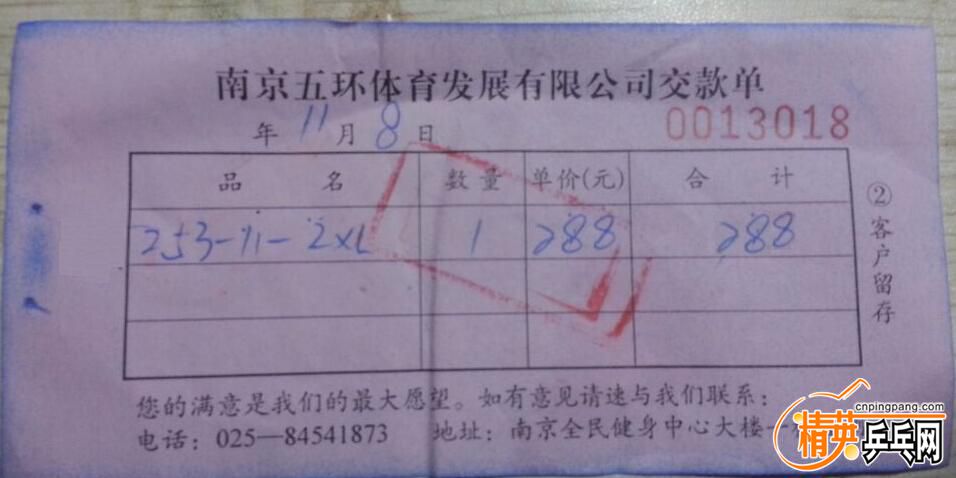 南京五环体育发展有限公司交款单
年 11 月 8 日 0013018
品 名 数量 单价(元) 合 计
253-11-2XL 1 288 288
②客户留存
您的满意是我们的最大愿望。如有意见请速与我们联系：
电话：025—84541873 地址：南京全民健身中心大楼一
cnpingpang.com
精英乒乓网